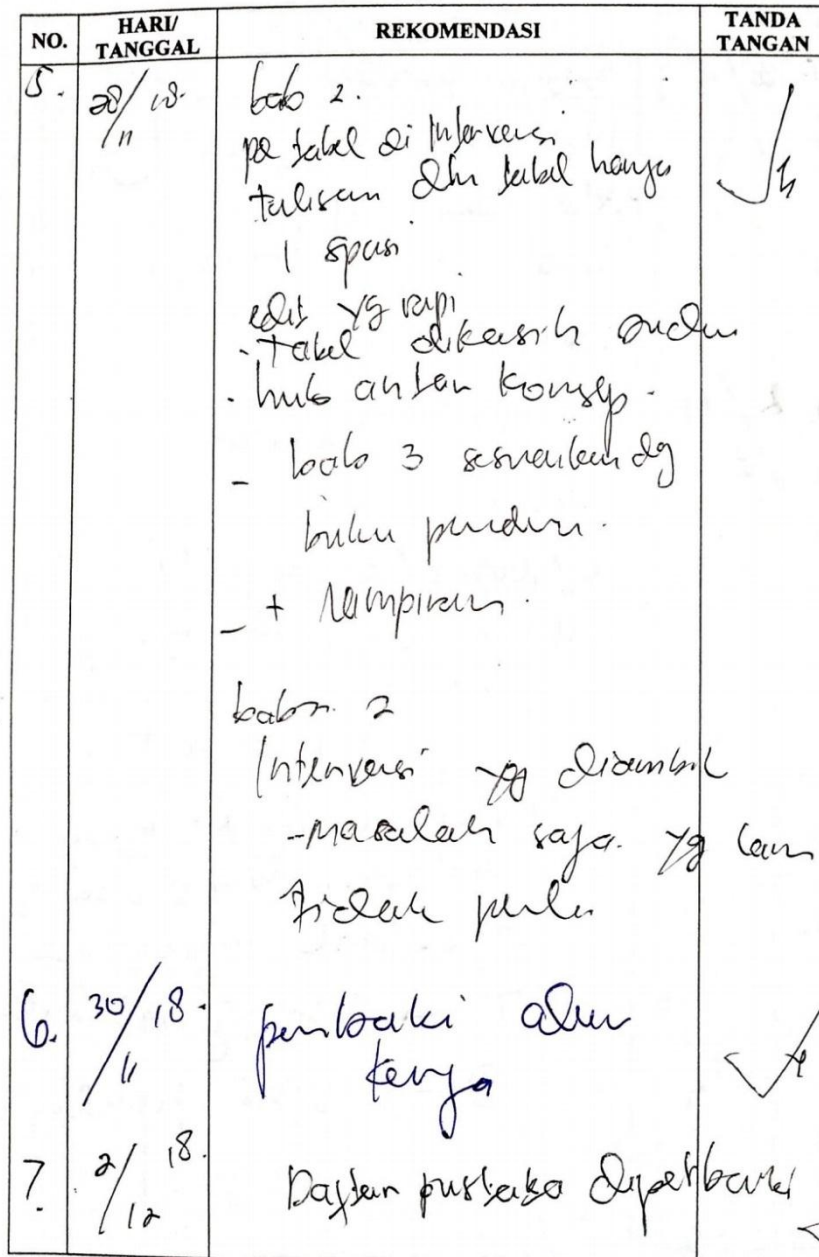 NO.
HARI/
TANGGAL
REKOMENDASI
TANDA
TANGAN
5.
28/11 18.
bab 2.
pd tabel di Intervensi
tulisan dlm tabel hanya
1 spasi
edit yg rapi
- Tabel dikasih
- hub antar konsep.
- bab 3 sesuaikan dg
buku panduan.
- + lampiran.
bab 2
Intervensi yg diambil
-masalah saja. yg lain
tidak perlu
6. 30/11 18.
perbaiki alur
kerja
7. 2/12 18.
Daftar pustaka diperbaiki